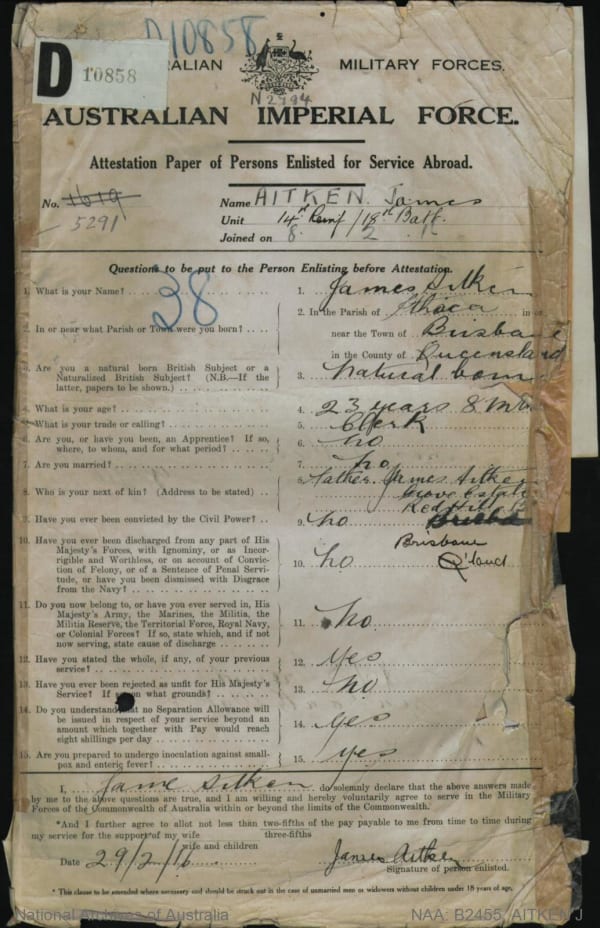 D10858
D 10858
RALIAN MILITARY FORCES.
N2794
AUSTRALIAN IMPERIAL FORCE.
Attestation Paper of Persons Enlisted for Service Abroad.
No. 1619 Name AITKEN. James
5291 Unit 14th Reinf/18th Batt.
Joined on 8. 2.
Questions to be put to the Person Enlisting before Attestation.
38
1. What is your Name? 1. James Aitken
2. In or near what Parish or Town were you born? 2. In the Parish of Ithaca in or
near the Town of Brisbane
in the County of Queensland
3. Are you a natural born British Subject or a
Naturalized British Subject? (N.B.—If the
latter, papers to be shown.) 3. Natural born
4. What is your age? 4. 23 years 8 Mt
5. What is your trade or calling? 5. Clerk
6. Are you, or have you been, an Apprentice? If so,
where, to whom, and for what period? 6. no
7. Are you married? 7. no
8. Who is your next of kin? (Address to be stated) 8. Father. James Aitken
Grove Estate
Red Hill
9. Have you ever been convicted by the Civil Power? 9. No Brisba
Brisbane
Q'land
10. Have you ever been discharged from any part of His
Majesty's Forces, with Ignominy, or as Incor-
rigible and Worthless, or on account of Convic-
tion of Felony, or of a Sentence of Penal Servi-
tude, or have you been dismissed with Disgrace
from the Navy? 10. No
11. Do you now belong to, or have you ever served in, His
Majesty's Army, the Marines, the Militia, the
Militia Reserve, the Territorial Force, Royal Navy,
or Colonial Forces? If so, state which, and if not
now serving, state cause of discharge 11. No
12. Have you stated the whole, if any, of your previous
service? 12. yes
13. Have you ever been rejected as unfit for His Majesty's
Service? If so on what grounds? 13. No
14. Do you understand that no Separation Allowance will
be issued in respect of your service beyond an
amount which together with Pay would reach
eight shillings per day 14. yes
15. Are you prepared to undergo inoculation against small-
pox and enteric fever? 15. yes
I, Jame Aitken do solemnly declare that the above answers made
by me to the above questions are true, and I am willing and hereby voluntarily agree to serve in the Military
Forces of the Commonwealth of Australia within or beyond the limits of the Commonwealth.
*And I further agree to allot not less than two-fifths of the pay payable to me from time to time during
my service for the support of my wife three-fifths
wife and children
Date 29/2/16 James Aitken
Signature of person enlisted.
* This clause to be amended where necessary and should be struck out in the case of unmarried men or widowers without children under 18 years of age.
National Archives of Australia NAA: B2455, AITKEN J